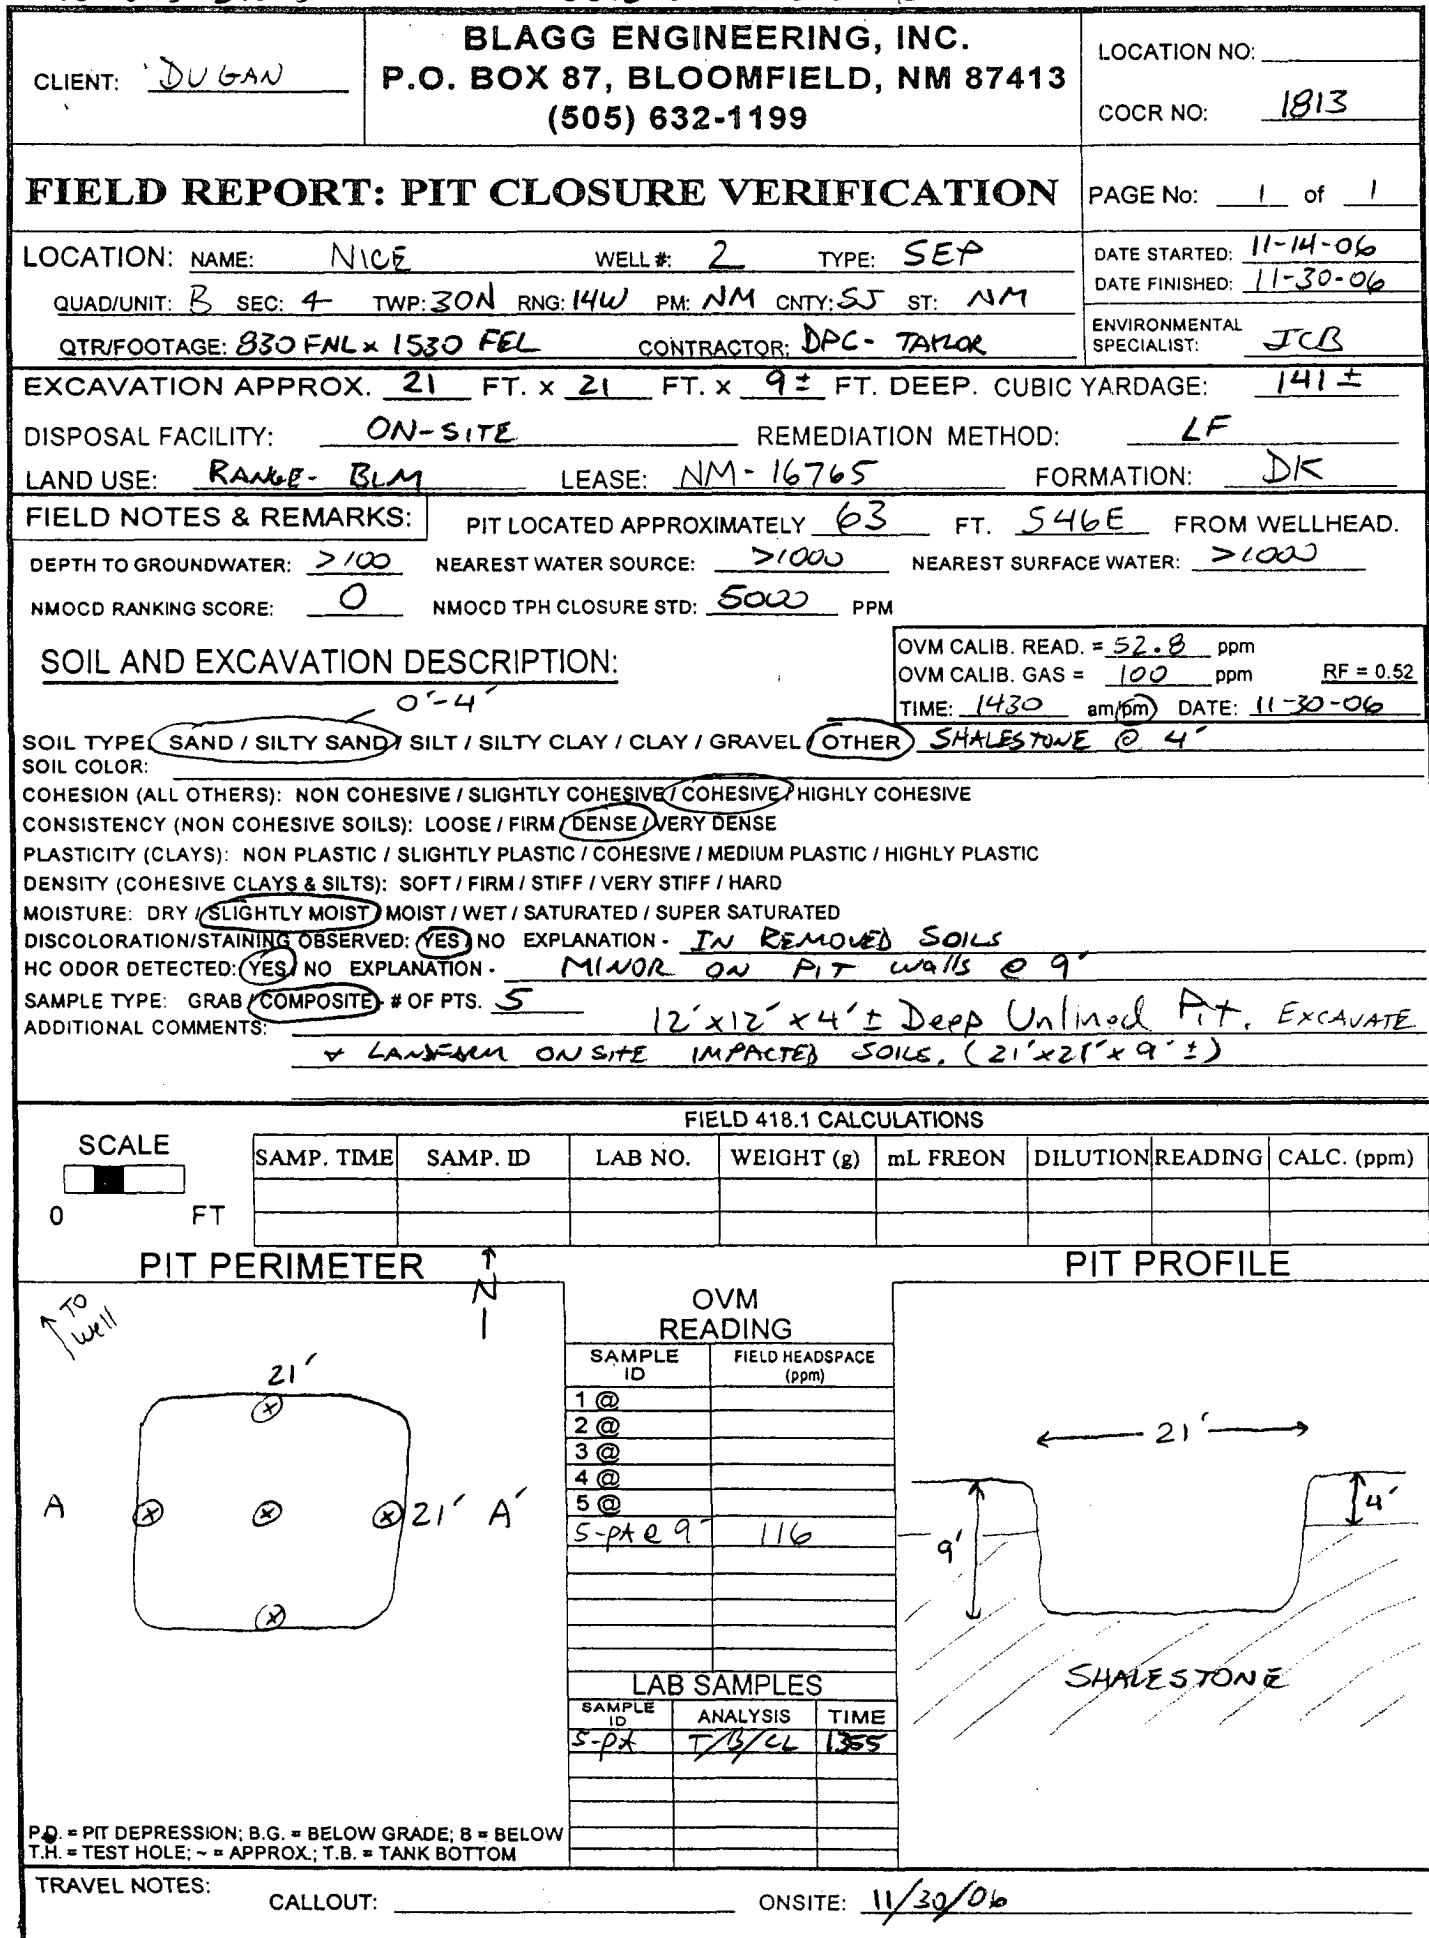 BLAGG ENGINEERING, INC.
P.O. BOX 87, BLOOMFIELD, NM 87413
(505) 632-1199
CLIENT: DUGAN
LOCATION NO:
COCR NO: 1813
FIELD REPORT: PIT CLOSURE VERIFICATION
PAGE No: 1 of 1
LOCATION: NAME: NICE WELL #: 2 TYPE: SEP
QUAD/UNIT: B SEC: 4 TWP: 30N RNG: 14W PM: NM CNTY: SJ ST: NM
QTR/FOOTAGE: 830 FNL x 1530 FEL CONTRACTOR: DPC - TAYLOR
DATE STARTED: 11-14-06
DATE FINISHED: 11-30-06
ENVIRONMENTAL
SPECIALIST: JCB
EXCAVATION APPROX. 21 FT. x 21 FT. x 9± FT. DEEP. CUBIC YARDAGE: 141±
DISPOSAL FACILITY: ON-SITE REMEDIATION METHOD: LF
LAND USE: RANGE - BLM LEASE: NM-16765 FORMATION: DK
FIELD NOTES & REMARKS: PIT LOCATED APPROXIMATELY 63 FT. S46E FROM WELLHEAD.
DEPTH TO GROUNDWATER: >100 NEAREST WATER SOURCE: >1000 NEAREST SURFACE WATER: >1000
NMOCD RANKING SCORE: 0 NMOCD TPH CLOSURE STD: 5000 PPM
SOIL AND EXCAVATION DESCRIPTION:
OVM CALIB. READ. = 52.8 ppm
OVM CALIB. GAS = 100 ppm RF = 0.52
TIME: 1430 am/pm DATE: 11-30-06
0'-4'
SOIL TYPE: SAND / SILTY SAND / SILT / SILTY CLAY / CLAY / GRAVEL / OTHER SHALESTONE @ 4'
SOIL COLOR:
COHESION (ALL OTHERS): NON COHESIVE / SLIGHTLY COHESIVE / COHESIVE / HIGHLY COHESIVE
CONSISTENCY (NON COHESIVE SOILS): LOOSE / FIRM / DENSE / VERY DENSE
PLASTICITY (CLAYS): NON PLASTIC / SLIGHTLY PLASTIC / COHESIVE / MEDIUM PLASTIC / HIGHLY PLASTIC
DENSITY (COHESIVE CLAYS & SILTS): SOFT / FIRM / STIFF / VERY STIFF / HARD
MOISTURE: DRY / SLIGHTLY MOIST / MOIST / WET / SATURATED / SUPER SATURATED
DISCOLORATION/STAINING OBSERVED: YES / NO EXPLANATION - IN REMOVED SOILS
HC ODOR DETECTED: YES / NO EXPLANATION - MINOR ON PIT walls @ 9'
SAMPLE TYPE: GRAB / COMPOSITE - # OF PTS. 5
ADDITIONAL COMMENTS: 12' x 12' x 4' ± Deep Unlined Pit. EXCAVATE
& LANDFARM ONSITE IMPACTED SOILS. (21' x 21' x 9' ±)
FIELD 418.1 CALCULATIONS
SCALE
0 FT
SAMP. TIME SAMP. ID LAB NO. WEIGHT (g) mL FREON DILUTION READING CALC. (ppm)
PIT PERIMETER
N
TO well
21'
A
21' A'
OVM
READING
SAMPLE ID FIELD HEADSPACE (ppm)
1 @
2 @
3 @
4 @
5 @
5-pt @ 9' 116
LAB SAMPLES
SAMPLE ID ANALYSIS TIME
5-pt T/B/CL 1355
PIT PROFILE
21'
4'
9'
SHALESTONE
P.D. = PIT DEPRESSION; B.G. = BELOW GRADE; B = BELOW
T.H. = TEST HOLE; ~ = APPROX.; T.B. = TANK BOTTOM
TRAVEL NOTES:
CALLOUT: ONSITE: 11/30/06